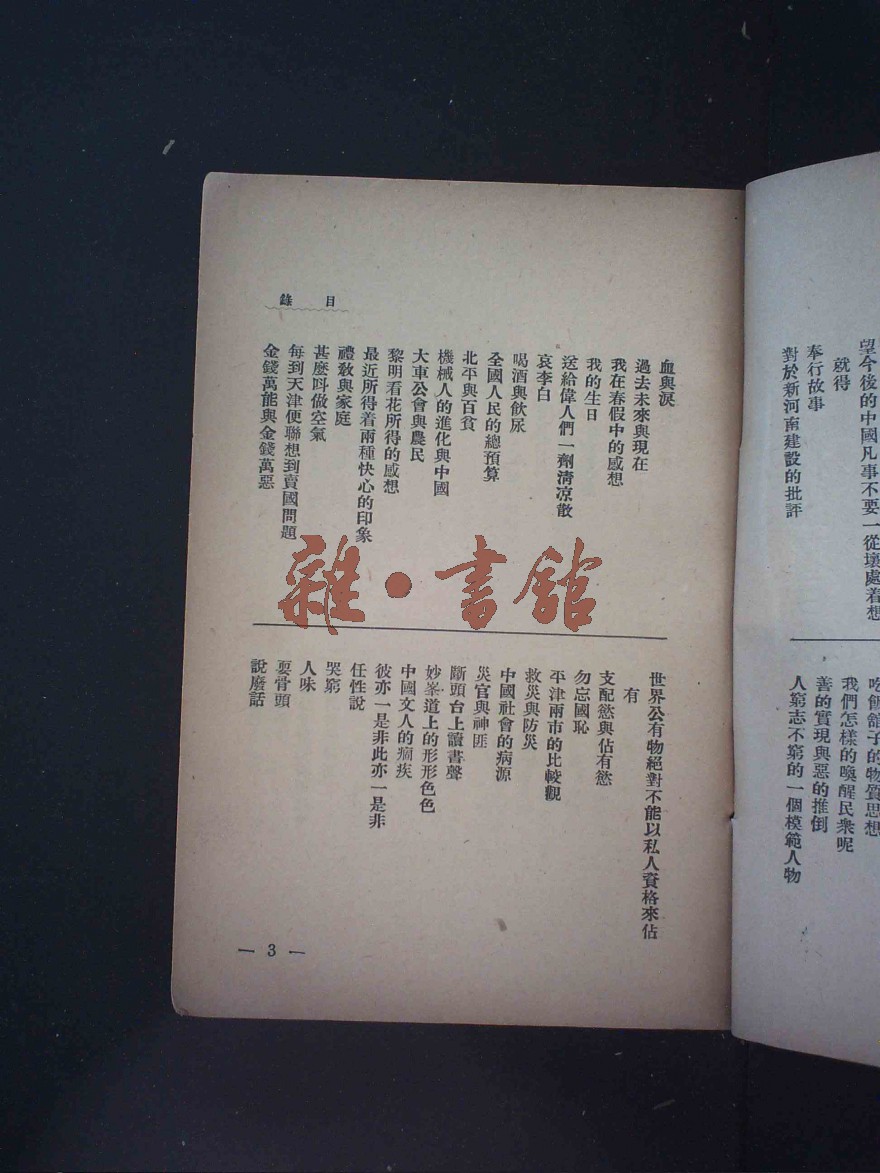 望今後的中國凡事不要一從壞處着想
就得
奉行故事
對於新河南建設的批評
吃飯舘子的物質思想
我們怎樣的喚醒民衆呢
善的實現與惡的推倒
人窮志不窮的一個模範人物
目錄
血與淚
過去未來與現在
我在春假中的感想
我的生日
送給偉人們一劑清凉散
哀李白
喝酒與飲尿
全國人民的總預算
北平與百貧
機械人的進化與中國
大車公會與農民
黎明看花所得的感想
最近所得着兩種快心的印象
禮教與家庭
甚麼呌做空氣
每到天津便聯想到賣國問題
金錢萬能與金錢萬惡
世界公有物絕對不能以私人資格來佔
有
支配慾與佔有慾
勿忘國恥
平津兩市的比較觀
救災與防災
中國社會的病源
災官與神匪
斷頭台上讀書聲
妙峯道上的形形色色
中國文人的痼疾
彼亦一是非此亦一是非
任性說
哭窮
人味
耍骨頭
說廢話
— 3 —
雜·書舘